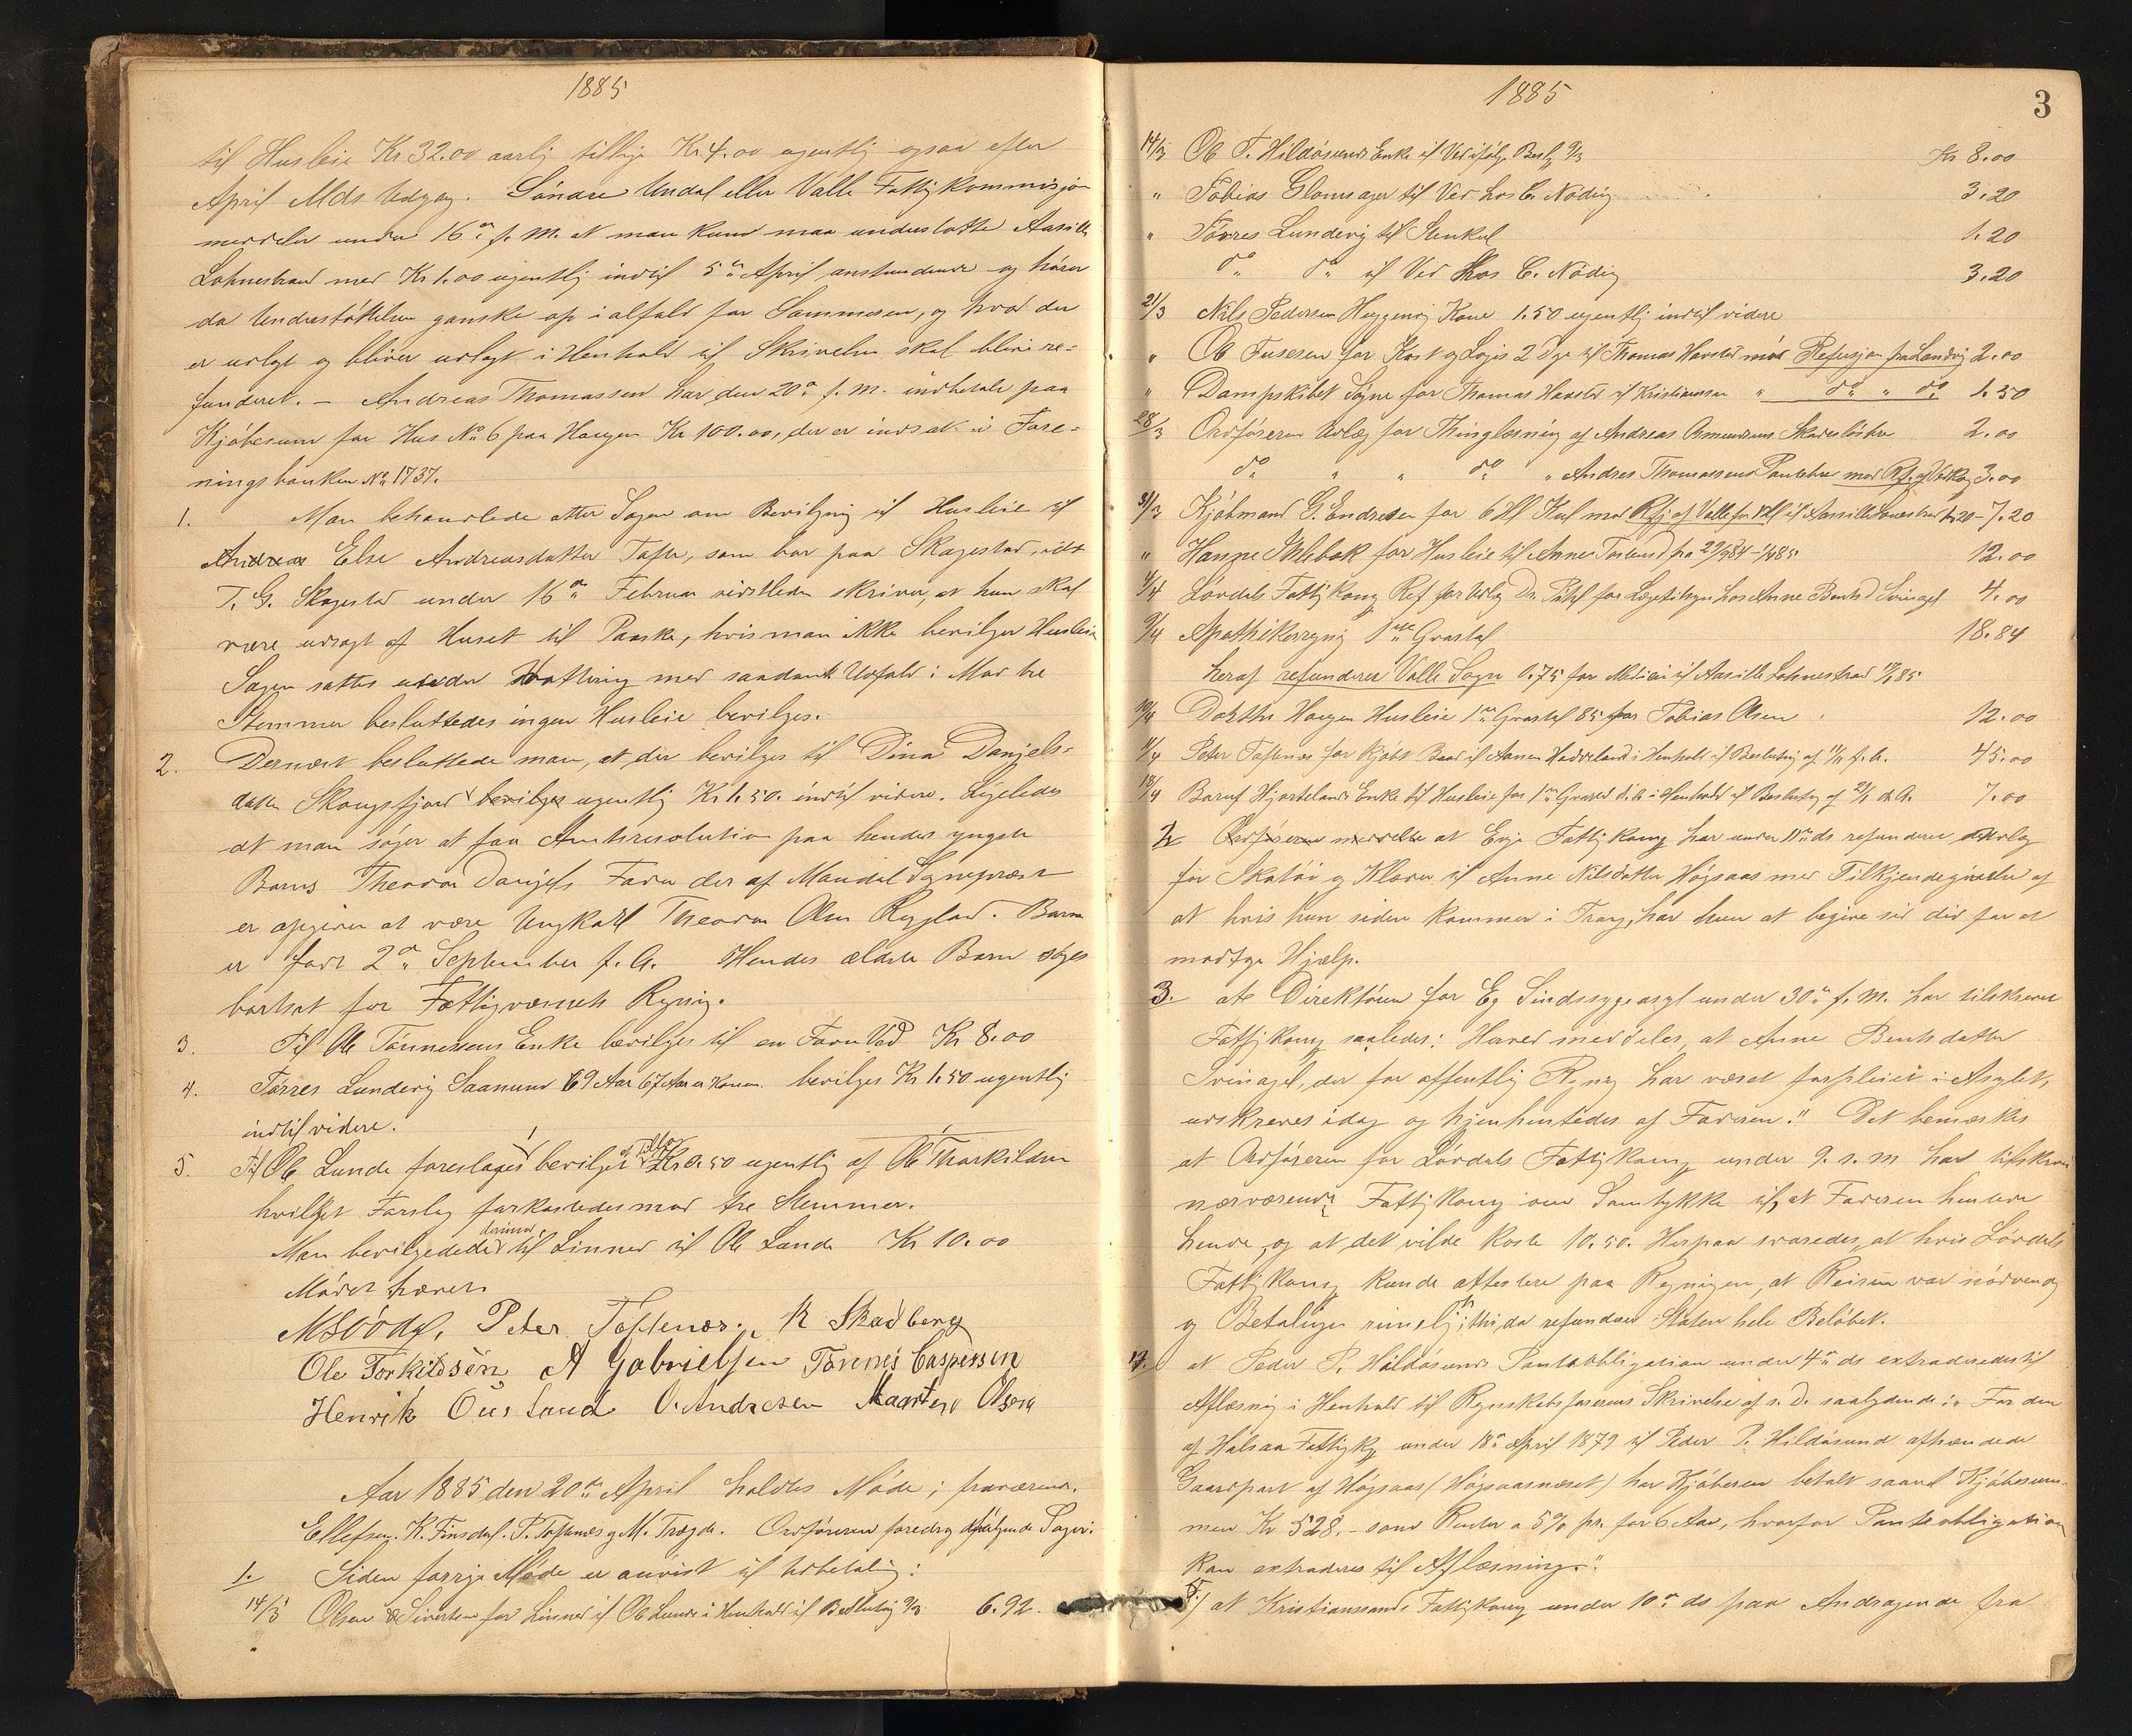 1885
til Husleie Kr 32.00 aarlig tillige Kr 4.00 ugentlig ogsaa efter
April Mds Udgang. Söndre Undal eller Valle Fattigkommisjon
meddeler under 16de f. M. at man kun maa understøtte Aasille
Lohnestrand med Kr 1.00 ugentlig indtil 5te April anstundende og hører
da Understøttelsen ganske op i alfald for Sommeren, og hvad der
er udlagt og bliver udlagt i Henhold til Skrivelsen skal blive re-
funderet. – Andreas Thomassen har den 20de f. M. indbetalt paa
Kjöbesum for Hus No 6 paa Haugen Kr 100.00, der er indsat i Fore-
ningsbanken No 1737.
1. Man behandlede atter Sagen om Bevilgning til Husleie til
Andreas Else Andreasdatter Tofte, som bor paa Skagestad, idet
T. G. Skagestad under 16de Februar sidstleden skriver, at hun skal
være udsagt af Huset til Paaske, hvis man ikke bevilger Husleie
Sagen sattes under Votering med saadant Udfald: Mod tre
Stemmer besluttedes ingen Husleie bevilges.
2. Dernæst besluttede man, at der bevilges til Dina Danjels-
datter Skougsfjord bevilges ugentlig Kr 1.50 indtil videre. Ligeledes
at man söger at faa Amtsresolution paa hendes yngste
Barns Theodor Danjels Fader der af Mandal Sognepræst
er opgiven at være Ungkarl Theodor Olsen Rygstad. Barnet
er født 2de September f. A. Hendes ældste Barn søges
bortsat for Fattigvæsenets Regning.
3. Til Ole Tönnessens Enke bevilges til en Favn Ved Kr 8.00
4. Törres Lundevig Saanum 69 Aar 67 Aar er Konen bevilges Kr 1.50 ugentlig
indtil videre.
5. Til Ole Lunde foreslages bevilget et Tillæg Kr 0.50 ugentlig af Ole Thorkildsen
hvilket Forslag forkastedes mod tre Stemmer.
Man bevilgede derimod til Linned til Ole Lunde Kr 10.00
Mödet hævet
Peter Toftenæs. K Skadberg
Ole Torkildsen A Gabrielsen Tønnes Caspersen
Henrik Ousland O. Andresen Maarten Olsen
Aar 1885 den 20de April holdtes Møde; fraværende
Ellefsen. K. Finsdal. P. Toftenæs og M. Trægde. Ordføreren foredrog følgende Sager:
1. Siden forrige Møde er anvist til Udbetaling:
14/3 Olsen & Sivertsen for Linned til Ole Lunde i Henhold til Beslutning 9/3 6.92
1885
3
14/3 Ole T. Hildøsunds Enke til Ved ifølge Beslg 9/3 Kr 8.00
" Tobias Glomsager til Ved hos C. Nödig 3.20
" Törres Lundevig til Stenkul 1.20
do do til Ved hos C. Nödig 3.20
21/3 Nils Pedersen Heggenvig Kone 1.50 ugentlig indtil videre
" Ole Tusesen for Kost og Logis 2 Dge til Thomas Havsted mod Refusjon fra Landvig 2.00
" Dampskibet Søgne for Thomas Havsted til Kristianssan " do " do 1.50
28/3 Ordføreren Udlæg for Thinglæsning af Andreas Asmundsens Skadesløsbre 2.00
do " " do " Andreas Thomassens Pantebre mod Ref. 3.00
31/3 Kjöbmand G. Endresen for 6 Hl Kul mod Rfj af Valle for til Aasille Lonestrad 1.20 – 7.20
" Hanne Ihlebæk for Husleie til Anne 12.00
4/4 Lövdals Fattigkomg Ref for Udlg Dr. for Lægetilsyn hos Anne Bents D Svinagel 4.00
9/4 Apothikerregning 1ste Qvartal 18.84
heraf refunderer Valle Sogn 0.75 for Medicin til Aasille Lohnestrad
10/4 Dorthe Haugen Husleie 1ste Qvartal 85 for Tobias Olsen 12.00
11/4 Peter Toftenæs for kjøbt Baad til Aanen Haddeland i Henhold til Beslutning af f. A. 45.00
18/4 Baruf Hjortelands Enke til Husleie for 1ste Qvartal d. A. i Henhold til Beslutng af d. A. 7.00
2 Ordføreren meddelte at Evje Fattigkomg har under 11te ds refunderet Udlæg
for Skotöi og Klæder til Anne Nilsdatter Högsaas med Tilkjendegivelse af
at hvis hun siden kommer i Trang, har hun at begive sig did for at
modtage Hjælp.
3. at Direktören for Eg Sindssygeasyl under 30te f. M. har tilskrevet
Fattigkomg saaledes: Herved meddeles, at Anne Bentsdatter
Svinagel, der for offentlig Regning har været forpleiet i Asylet,
udskreves idag og hjemhentedes af Faderen." Det bemærkes
at Ordføreren for Lövdals Fattigkomg under 9. s. M har tilskrevet
nærværende Fattigkomg om Samtykke til, at Faderen hentede
hende, og at det vilde koste 10.50. Herpaa svaredes, at hvis Lövdals
Fattigkomg kunde attestere paa Regningen, at Reisen var nödvendig
og Betalingen rimelig, thi da refunderer Staten hele Beløbet.
at Peder P. Hildøsunds Pantobligation under 4de ds extraderedes til
Aflæsning i Henhold til Regnskabsførerens Skrivelse af s. D. saalydende: "For den
af Halsaa Fattigkg under 18de April 1879 til Peder P. Hildøsund afhændede
Gaardpart af Høgsaas (Høgsaasnæset) har Kjøberen betalt saavel Kjøbesum-
men Kr 528,- som Renter a 5% pr. for 6 Aar, hvorfor Panteobligation
kan extraderes til Aflæsning."
at Kristianssands Fattigkomg under 10de ds paa Andragende fra